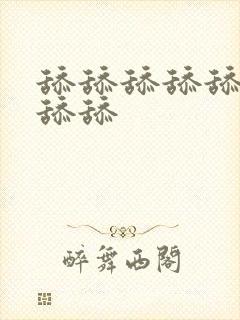 舔舔舔舔舔
舔舔
醉舞西閣